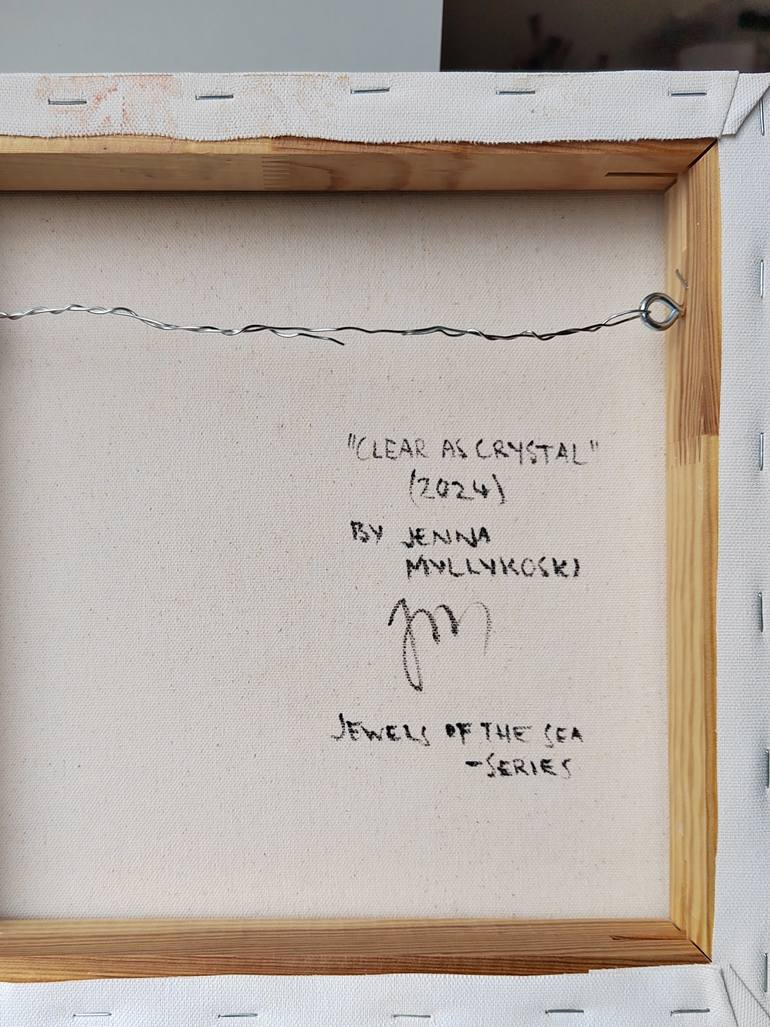 "CLEAR AS CRYSTAL"
(2024)
BY JENNA
MYLLYKOSKI
JM
JEWELS OF THE SEA
-SERIES